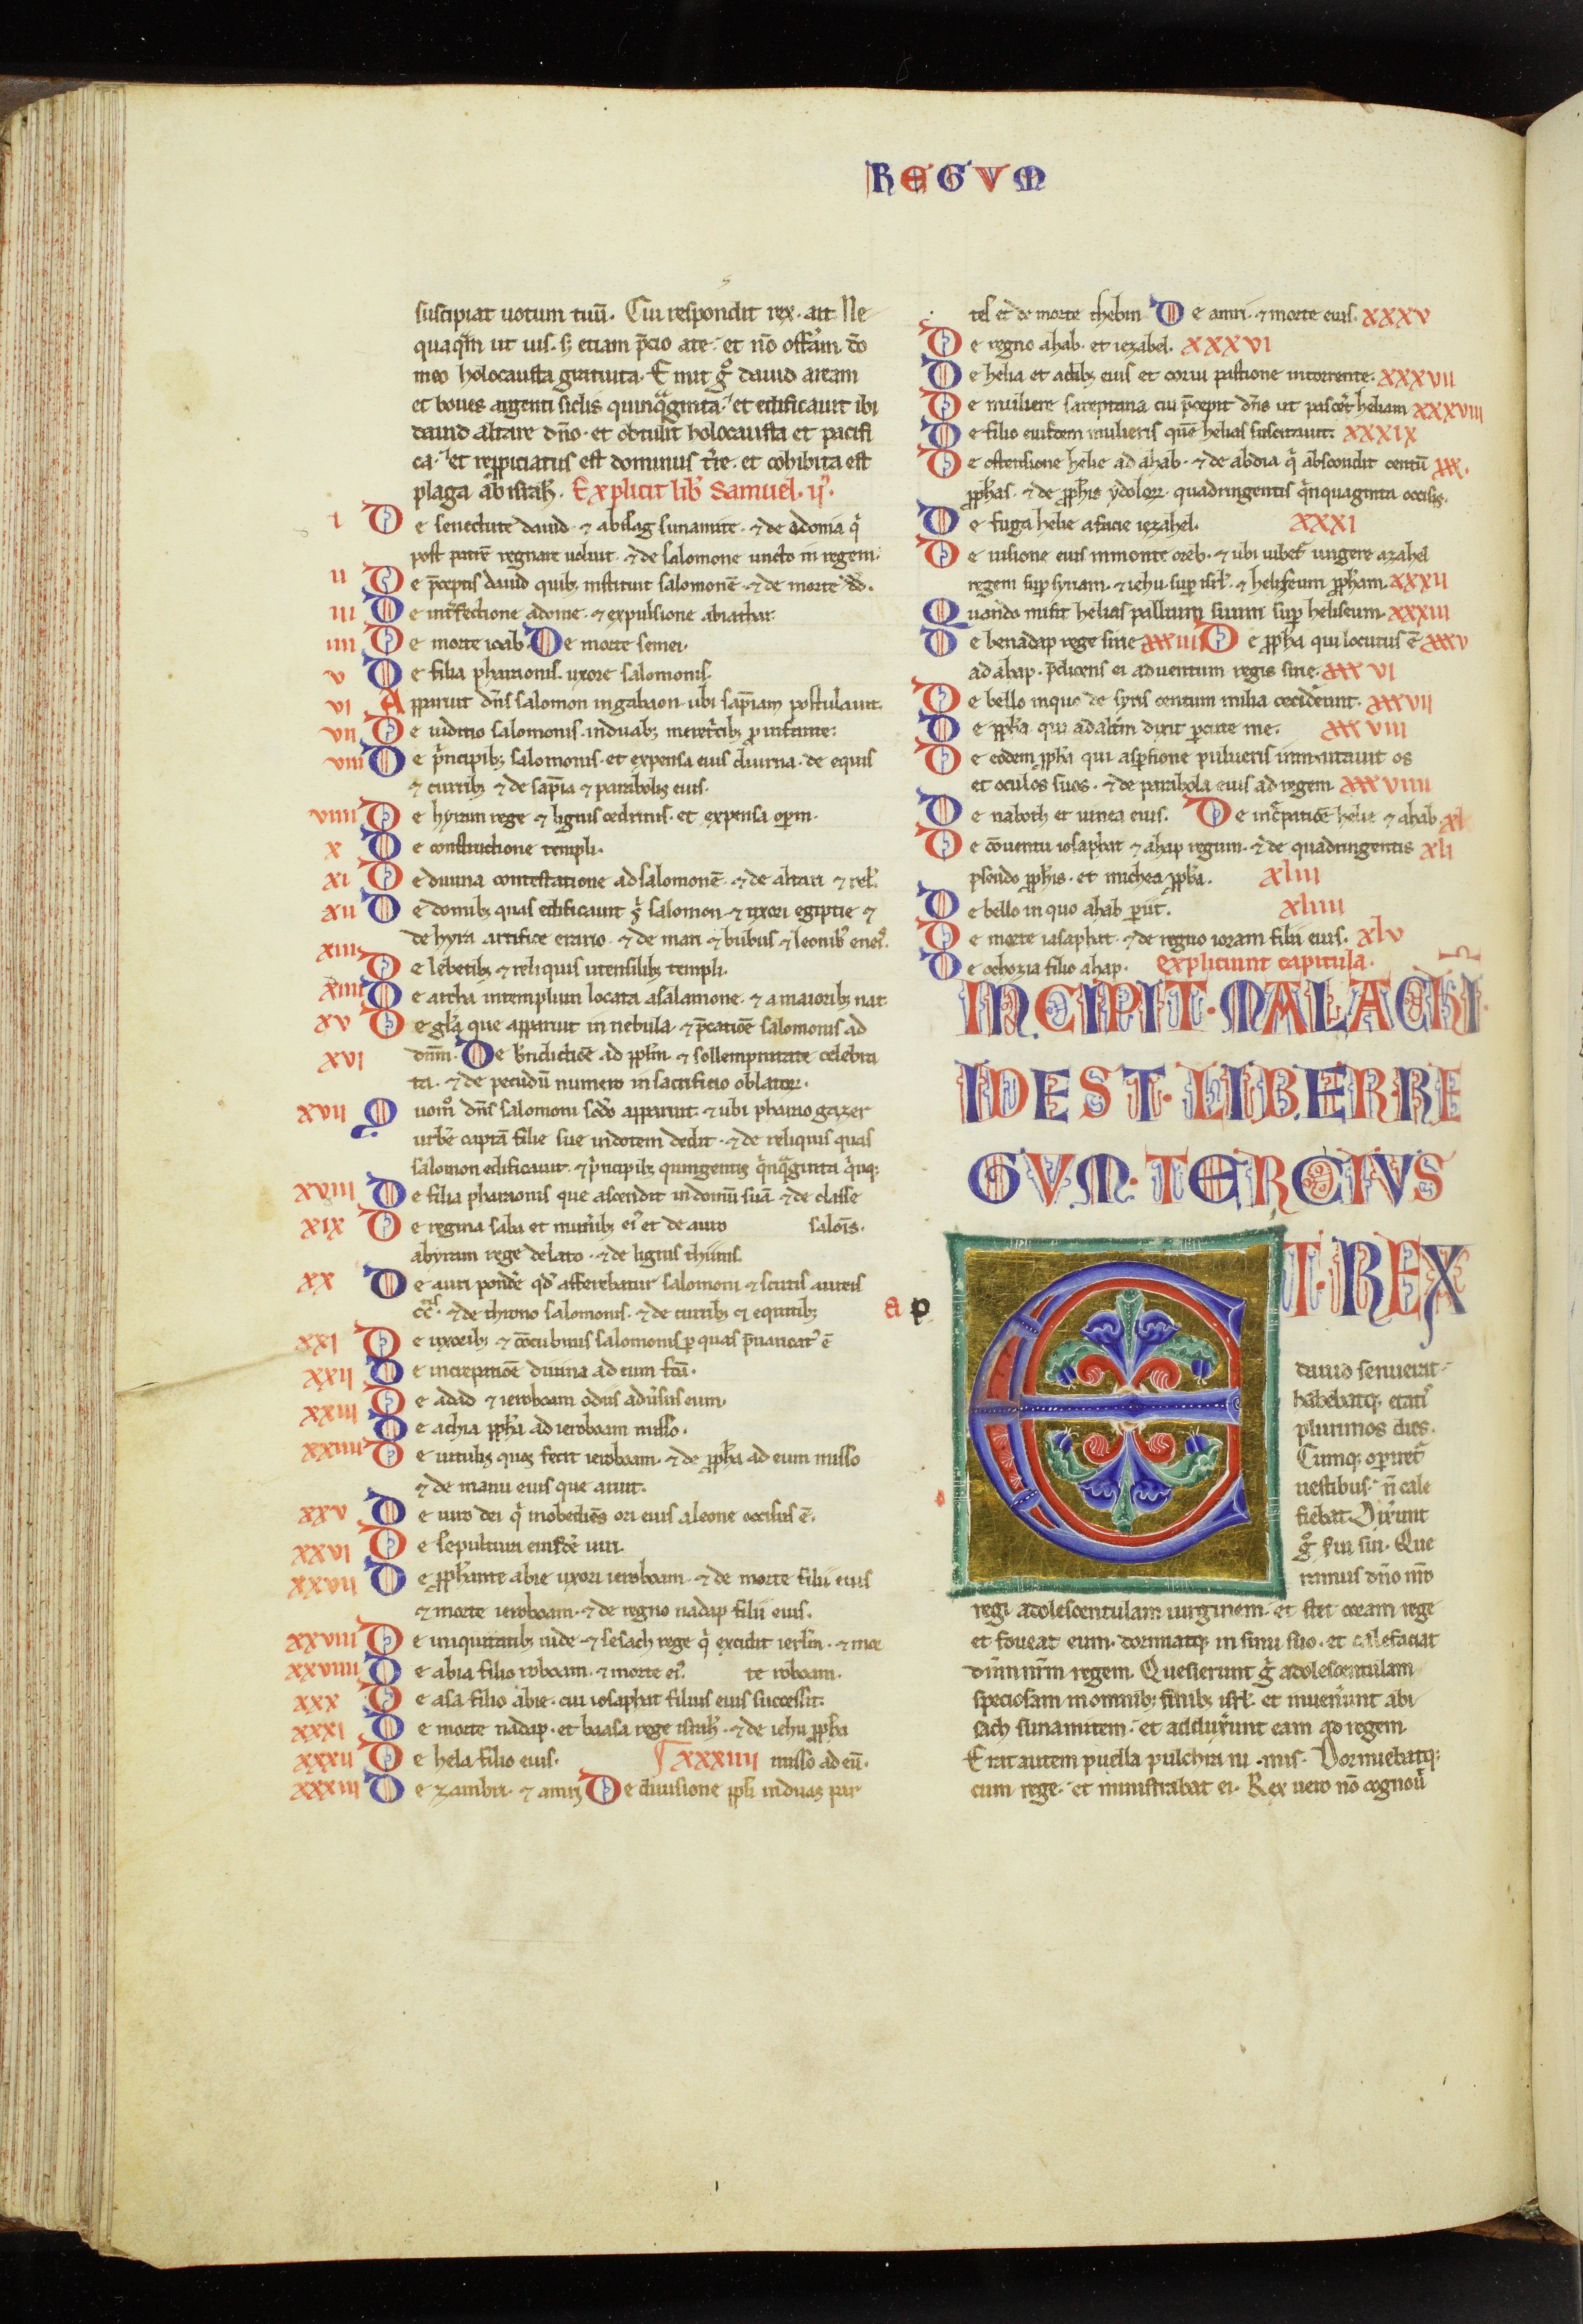 REGVM
suscipiat uotum tuū. Cui respondit rex. ait. Ne
quaq̄m ut uis. s; etiam p̄cio a te. et nō offerā dn̄o
meo holocausta gratuita. Emit g̊ dauid aream
et boues argenti siclis quinq̄ginta. et edificauit ibi
dauid altare dn̄o. et obtulit holocausta et pacifi
ca. et reppiciatus est dominus tr̄e. et cohibita est
plaga ab isrł. Explicit lib' Samuel. ij.
i De senectute dauid. ⁊ abisag sunamite. ⁊ de adonia q̇
post patrē regnare uoluit. ⁊ de salomone uncto in regem.
ii De p̄ceptis dauid quib; instituit salomonē. ⁊ de morte dd.
iii De int̓fectione adonie. ⁊ expulsione abiathar.
iiii De morte ioab. De morte semei.
v De filia pharaonis. uxore salomonis.
vi Apparuit dn̄s salomon in gabaon. ubi sapīam postulauit.
vii De iuditio salomonis. in duab; meret̓cib; pro infante.
viii De p̓ncipib; salomonis. et expensa eius diurna. de equis
⁊ currib; ⁊ de sapīa ⁊ parabolis eius.
viiii De hyram rege ⁊ lignis cedrinis. et expensa operū.
x De constructione templi.
xi De diuina contestatione ad salomonē. ⁊ de altari ⁊ rel'.
xii De domib; quas edificauit s' salomon ⁊ uxori egiptie ⁊
de hyra artifice erario. ⁊ de mari ⁊ bubus ⁊ leonib' eneis.
xiii De lebetib; ⁊ reliquis utensilib; templi.
xiiii De archa in templum locata a salamone. ⁊ a maioribus nat
xv De gl̄a que apparuit in nebula. ⁊ p̄catiōe salomonis ad
xvi dnm. De bn̄dictiōe ad ppl̄m ⁊ sollempnitate celebra
ta. ⁊ de pecudū numero in sacrificio oblator.
xvii Quom̊ dn̄s salomoni sc̄do apparuit. ⁊ ubi pharao gazer
urbē captā filie sue in dotem dedit. ⁊ de reliquis quas
salomon edificauit. ⁊ p̓ncipib; quingentis q̓nq̄ginta q̓nq;
xviii De filia pharaonis que ascendit in domū suā ⁊ de classe
xix De regina saba et munerib; ei' et de auro salōis.
abyram rege delato. ⁊ de lignis thinis.
xx De auri pondere qd' afferebatur salomoni ⁊ scutis aureis
ccc. ⁊ de throno salomonis. ⁊ de currib; ei equitib;
xxi De uxorib; ⁊ cōcubinis salomonis p quas p̄uaricat' ē
xxii De increpatiōe diuina ad eum fcā.
xxiii De adad ⁊ ieroboam odiis adūsus eum.
De achia ppħa ad ieroboam misso.
xxiiii De uitulis quos fecit ieroboam. ⁊ de ppħa ad eum misso
⁊ de manu eius que aruit.
xxv De uiro dei q̇ inobediens ori eius a leone occisus ē.
xxvi De sepultura eiusdē uiri.
xxvii De ppħante abie uxori ieroboam. ⁊ de morte filii eius
⁊ morte ieroboam. ⁊ de regno nadap filii eius.
xxviii De iniquitatib; iude ⁊ sesach rege q̇ excidit ierl̄m. ⁊ mor
xxviiii De abia filio roboam. ⁊ morte ei'. te roboam.
xxx De asa filio abie. cui iosaphat filius eius successit.
xxxi De morte nadap. et baasa rege isrł. ⁊ de iehu ppħa
xxxii De hela filio eius. xxxiiii misso ad eū.
xxxiii De zambri. ⁊ amri De diuisione ppl̄i in duas par
tes et de morte thebni De amri. ⁊ morte eius. xxxv
De regno ahab. et iezabel. xxxvi
De helia et actib; eius et corui pastione in torrente. xxxvii
De muliere sareptana cui p̄cepit dn̄s ut pasceret heliam xxxviii
De filio eiusdem mulieris quē helias suscitauit. xxxix
De ostensione helie ad ahab. ⁊ de abdia q̇ abscondit centū xxx.
ppħas. ⁊ de ppħis ydolor. quadringentis q̓nquaginta occisis.
De fuga helie a facie iezabel. xxxi
De uisione eius in monte oreb. ⁊ ubi iubet' ungere azahel
regem sup syriam. ⁊ iehu sup isrł. ⁊ heliseum ppħam. xxxii
Quando misit helias pallium suum sup heliseum. xxxiii
De benadap rege sirie xxxiiii De ppħa qui locutus ē xxxv
ad ahap. p̄dicens ei aduentum regis sirie. xxxvi
De bello in quo de syris centum milia ceciderunt. xxxvii
De ppħa qui ad altm dixit percute me. xxxviii
De eodem ppħa qui aspersione pulueris inmutauit os
et oculos suos. ⁊ de parabola eius ad regem xxxviiii
De naboth et uinea eius. De inc̓patiōe helie ⁊ ahab. xl
De cōuentu iosaphat ⁊ ahap regum. ⁊ de quadringentis xli
pseudo ppħis. et michea ppħa. xliii
De bello in quo ahab periit. xliiii
De morte iasaphat. ⁊ de regno ioram filii eius. xlv
De ochozia filio ahap. expliciunt capitula.
INCIPIT. MALACHI.
IDEST. LIBER. RE
GVM. TERCIVS
a p
ET. REX
dauid senuerat.
habebatq; etatis
plurimos dies.
Cumq; operiret̓
uestibus. n̄ cale
fiebat. Dixerunt
g̊ serui sui. Que
ramus dn̄o nr̄o
regi adolescentulam uirginem. et stet coram rege
et foueat eum. dormiatq; in sinu suo. et calefaciat
dn̄m nr̄m regem. Quesierunt g̊ adolescentulam
speciosam in omnib; finib; isrł. et inuenerunt abi
sach sunamitem. et adduxerunt eam ad regem.
Erat autem puella pulchra nimis. Dormiebatq;
cum rege. et ministrabat ei. Rex uero nō cognouit